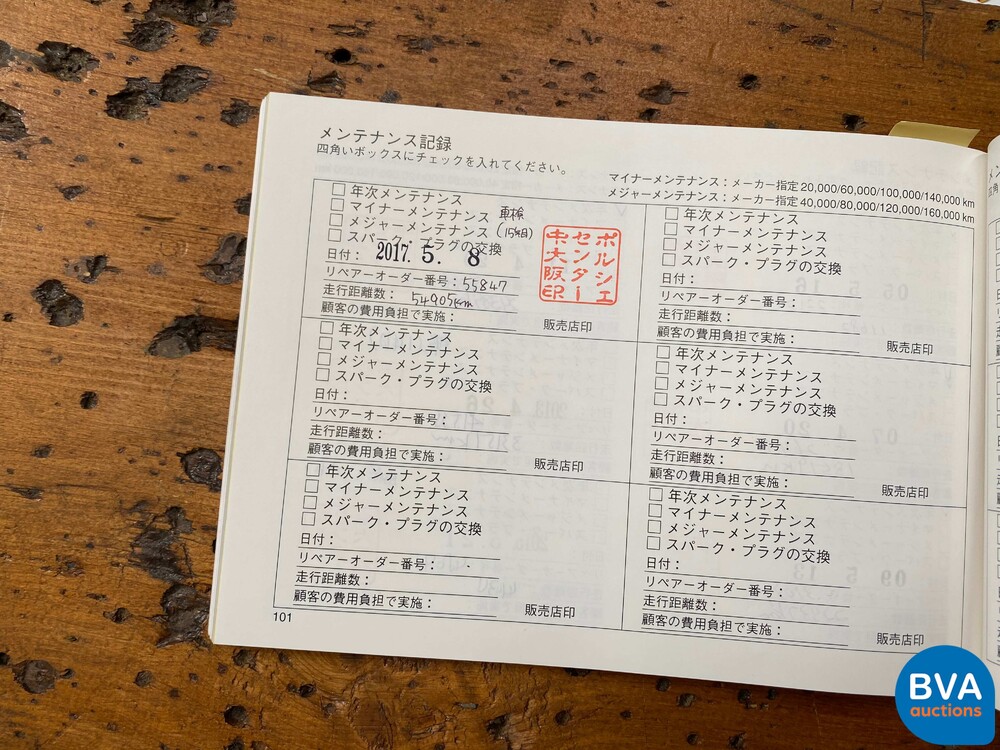 メンテナンス記録
四角いボックスにチェックを入れてください。
マイナーメンテナンス：メーカー指定 20,000/60,000/100,000/140,000 km
メジャーメンテナンス：メーカー指定 40,000/80,000/120,000/160,000 km
年次メンテナンス
マイナーメンテナンス 車検
メジャーメンテナンス
スパーク・プラグの交換
日付： 2017. 5. 8
リペアーオーダー番号：55847
走行距離数： 54905km
顧客の費用負担で実施：
販売店印
ポルシェ
センター
中大阪印
年次メンテナンス
マイナーメンテナンス
メジャーメンテナンス
スパーク・プラグの交換
日付：
リペアーオーダー番号：
走行距離数：
顧客の費用負担で実施：
販売店印
年次メンテナンス
マイナーメンテナンス
メジャーメンテナンス
スパーク・プラグの交換
日付：
リペアーオーダー番号：
走行距離数：
顧客の費用負担で実施：
販売店印
年次メンテナンス
マイナーメンテナンス
メジャーメンテナンス
スパーク・プラグの交換
日付：
リペアーオーダー番号：
走行距離数：
顧客の費用負担で実施：
販売店印
年次メンテナンス
マイナーメンテナンス
メジャーメンテナンス
スパーク・プラグの交換
日付：
リペアーオーダー番号：
走行距離数：
顧客の費用負担で実施：
販売店印
年次メンテナンス
マイナーメンテナンス
メジャーメンテナンス
スパーク・プラグの交換
日付：
リペアーオーダー番号：
走行距離数：
顧客の費用負担で実施：
販売店印
101
BVA
auctions